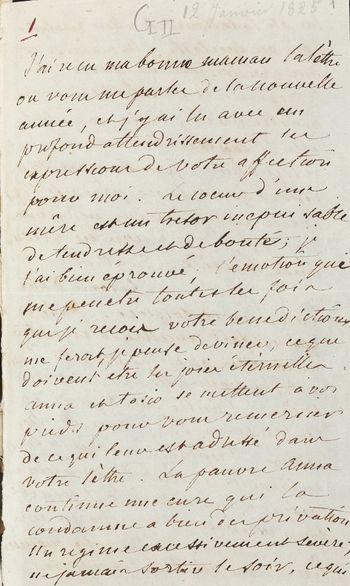 1
GIII
12 Janvier 1825
J'ai reçu ma bonne maman la lettre
ou vous me parlez de la nouvelle
année, et j'y ai lu avec un
profond attendrissement les
expressions de votre affection
pour moi. Le coeur d'une
mère est un tresor inepuisable
de tendresse et de bontés, je
l'ai bien eprouvé, l'emotion qui
me penètre toutes les fois
que je reçois votre benediction
me ferait, je pense deviner, ce que
doivent etre les joies éternelles.
Anna et se mettent a vos
pieds pour vous remercier
de ce qui leur est adressé dans
votre lettre. La pauvre Anna
continue une cure qui la
condamne a bien des privations
Un regime excessivement severe,
ne jamais sortir le soir, ce qui